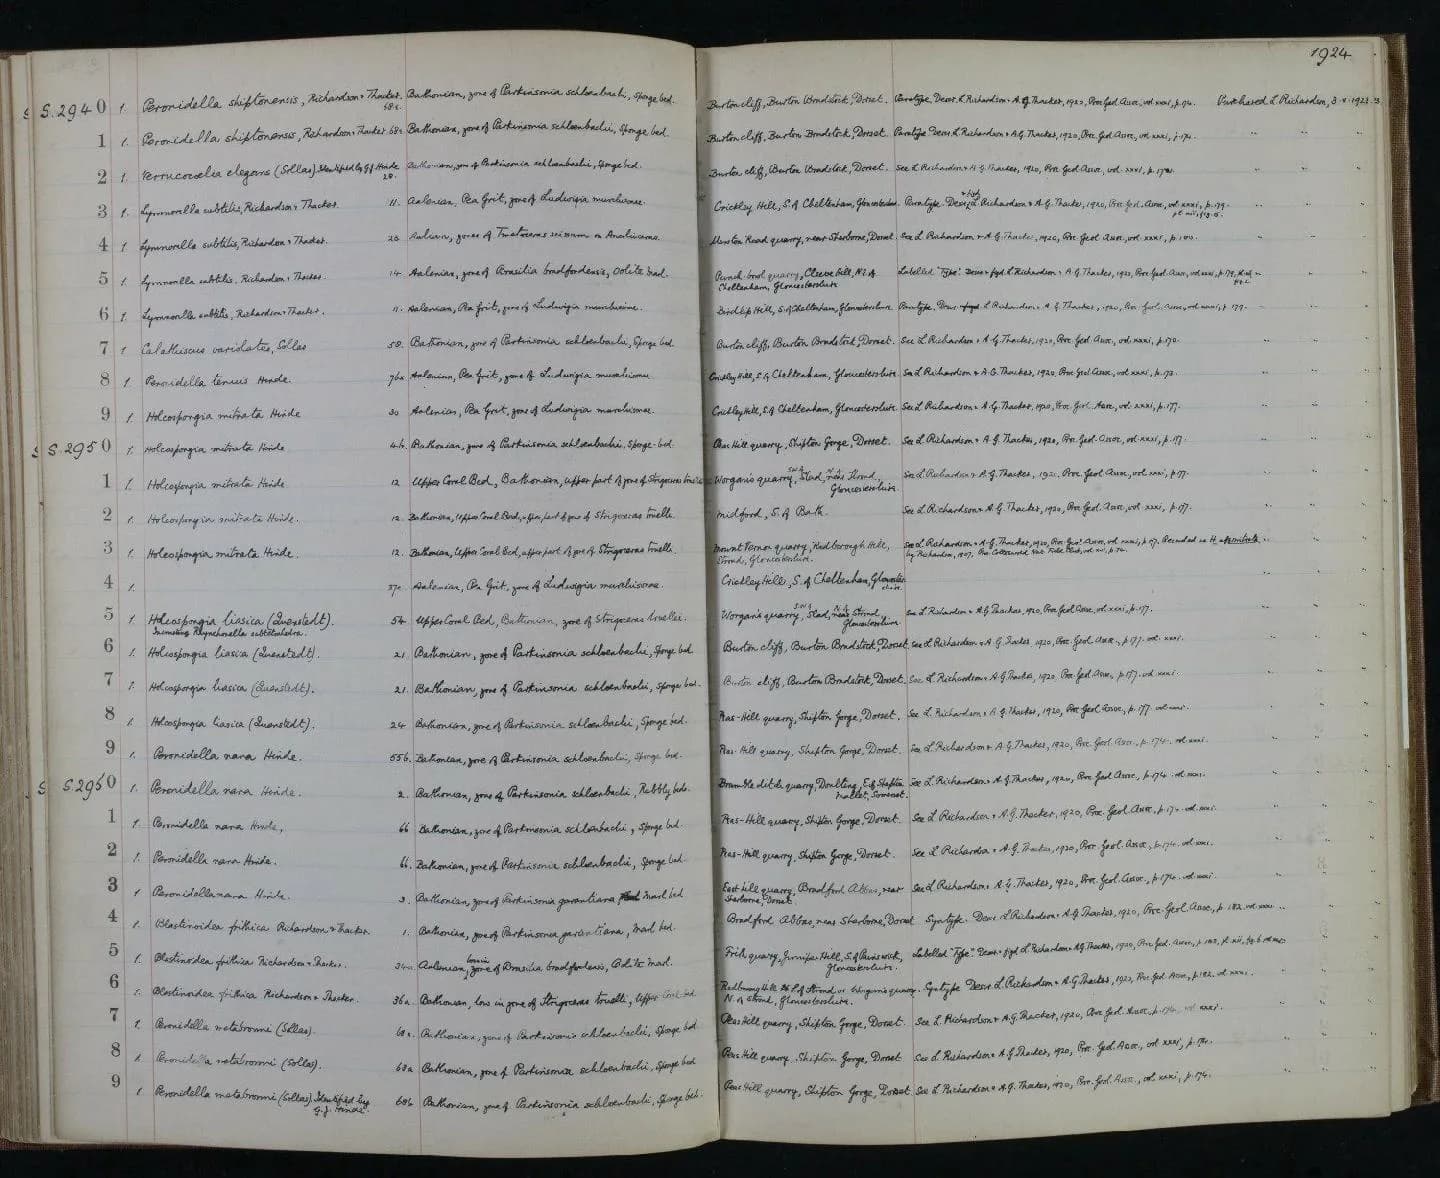 1924
S.2940 1. Peronidella shiptonensis, Richardson & Thacker. 68c. Bathonian, zone of Parkinsonia schloenbachi, Sponge bed. Burton cliff, Burton Bradstock, Dorset. Paratype. Descr. L Richardson & A.G. Thacker, 1920, Proc. Geol. Assoc., vol. xxxi, p. 174. Purchased L. Richardson, 3
1 1. Peronidella shiptonensis, Richardson & Thacker 68c Bathonian, zone of Parkinsonia schloenbachi, Sponge bed Burton cliff, Burton Bradstock, Dorset. Paratype Descr. L Richardson & A.G. Thacker, 1920, Proc. Geol. Assoc., vol. xxxi, p. 174. " "
2 1. Verrucocoelia elegans (Sollas). Identified by G.J. Hinde 28. Bathonian, zone of Parkinsonia schloenbachi, Sponge bed. Burton cliff, Burton Bradstock, Dorset. See L. Richardson & A.G. Thacker, 1920, Proc. Geol. Assoc., vol. xxxi, p. " "
3 1. Lymnorella subtilis, Richardson & Thacker. 11. Aalenian, Pea Grit, zone of Ludwigia murchisonae. Crickley Hill, S. of Cheltenham, Gloucestershire. Paratype. Descr. & figd. L. Richardson & A.G. Thacker, 1920, Proc. Geol. Assoc., vol. xxxi, p. 179. " "
4 1. Lymnorella subtilis, Richardson & Thacker. 28 Aalenian, zones of Tmetoceras scissum or Ancolioceras. Marston Road quarry, near Sherborne, Dorset. See L. Richardson & A.G. Thacker, 1920, Proc. Geol. Assoc., vol. xxxi, p. " "
5 1. Lymnorella subtilis, Richardson & Thacker. 14 Aalenian, zone of Brasilia bradfordensis, Oolite Marl. Punch-bowl quarry, Cleeve hill, N.E. of Cheltenham, Gloucestershire Labelled "Type". Descr. & figd. L. Richardson & A.G. Thacker, 1920, Proc. Geol. Assoc., vol. xxxi, p. 179, " "
6 1. Lymnorella subtilis, Richardson & Thacker. 11. Aalenian, Pea Grit, zone of Ludwigia murchisonae. Birdlip Hill, S. of Cheltenham, Gloucestershire. Paratype. Descr. L. Richardson & A.G. Thacker, 1920, Proc. Geol. Assoc., vol. xxxi, p. 179. " "
7 1 Calathiscus variolatus, Sollas 58. Bathonian, zone of Parkinsonia schloenbachi, Sponge bed Burton cliff, Burton Bradstock, Dorset. See L. Richardson & A.G. Thacker, 1920, Proc. Geol. Assoc., vol. xxxi, p. 170. " "
8 1. Peronidella tenuis Hinde. 76a Aalenian, Pea Grit, zone of Ludwigia murchisonae Crickley Hill, S. of Cheltenham, Gloucestershire. See L. Richardson & A.G. Thacker, 1920, Proc. Geol. Assoc., vol. xxxi, p. 173. " "
9 1. Holcospongia mitrata Hinde 30 Aalenian, Pea Grit, zone of Ludwigia murchisonae. Crickley Hill, S. of Cheltenham, Gloucestershire. See L. Richardson & A.G. Thacker, 1920, Proc. Geol. Assoc., vol. xxxi, p. 177. " "
S.2950 1. Holcospongia mitrata Hinde 46. Bathonian, zone of Parkinsonia schloenbachi, Sponge-bed. Peas Hill quarry, Shipton Gorge, Dorset. See L. Richardson & A.G. Thacker, 1920, Proc. Geol. Assoc., vol. xxxi, p. 177. " "
1 1. Holcospongia mitrata Hinde 12 Upper Coral Bed, Bathonian, upper part of zone of Strigoceras truellei Worgan's quarry, Slad, near Stroud, Gloucestershire. See L. Richardson & A.G. Thacker, 1920, Proc. Geol. Assoc., vol. xxxi, p. 177. " "
2 1. Holcospongia mitrata Hinde. 12. Bathonian, Upper Coral Bed, upper part of zone of Strigoceras truellei. Midford, S. of Bath. See L. Richardson & A.G. Thacker, 1920, Proc. Geol. Assoc., vol. xxxi, p. 177. " "
3 1. Holcospongia mitrata Hinde. 12. Bathonian, Upper Coral Bed, upper part of zone of Strigoceras truellei. Mount Vernon quarry, Rodborough Hill, Stroud, Gloucestershire. See L. Richardson & A.G. Thacker, 1920, Proc. Geol. Assoc., vol. xxxi, p. 177. Recorded as H. by Richardson, 1907, Proc. Cotteswold Nat. Field Club, vol. " "
4 1. 37c. Aalenian, Pea Grit, zone of Ludwigia murchisonae. Crickley Hill, S. of Cheltenham, Gloucestershire. " "
5 1. Holcospongia liasica (Quenstedt). Incrusting Rhynchonella subtetrahedra. 54. Upper Coral Bed, Bathonian, zone of Strigoceras truellei. Worgan's quarry, Slad, near Stroud, Gloucestershire. See L. Richardson & A.G. Thacker, 1920, Proc. Geol. Assoc., vol. xxxi, p. 177. " "
6 1. Holcospongia liasica (Quenstedt). 21. Bathonian, zone of Parkinsonia schloenbachi, Sponge bed. Burton cliff, Burton Bradstock, Dorset. See L. Richardson & A.G. Thacker, 1920, Proc. Geol. Assoc., p. 177. vol. xxxi. " "
7 1. Holcospongia liasica (Quenstedt). 21. Bathonian, zone of Parkinsonia schloenbachi, Sponge bed. Burton cliff, Burton Bradstock, Dorset. See L. Richardson & A.G. Thacker, 1920, Proc. Geol. Assoc., p. 177. vol. xxxi. " "
8 1. Holcospongia liasica (Quenstedt). 24 Bathonian, zone of Parkinsonia schloenbachi, Sponge bed. Peas-Hill quarry, Shipton Gorge, Dorset. See L. Richardson & A.G. Thacker, 1920, Proc. Geol. Assoc., p. 177. vol. xxxi. " "
9 1. Peronidella nana Hinde. 55b. Bathonian, zone of Parkinsonia schloenbachi, Sponge bed. Peas-Hill quarry, Shipton Gorge, Dorset. See L. Richardson & A.G. Thacker, 1920, Proc. Geol. Assoc., p. 174. vol. xxxi. " "
S.2960 1. Peronidella nana Hinde. 2. Bathonian, zone of Parkinsonia schloenbachi, Rubbly beds. Bramble ditch quarry, Doulting, E. of Shepton Mallet, Somerset. See L. Richardson & A.G. Thacker, 1920, Proc. Geol. Assoc., p. 174. vol. xxxi. " "
1 1. Peronidella nana Hinde. 66 Bathonian, zone of Parkinsonia schloenbachi, Sponge bed Peas-Hill quarry, Shipton Gorge, Dorset. See L. Richardson & A.G. Thacker, 1920, Proc. Geol. Assoc., p. 174. vol. xxxi. " "
2 1. Peronidella nana Hinde. 66. Bathonian, zone of Parkinsonia schloenbachi, Sponge bed Peas-Hill quarry, Shipton Gorge, Dorset. See L. Richardson & A.G. Thacker, 1920, Proc. Geol. Assoc., p. 174. vol. xxxi. " "
3 1 Peronidella nana Hinde. 3. Bathonian, zone of Parkinsonia garantiana Marl bed East hill quarry, Bradford Abbas, near Sherborne, Dorset. See L. Richardson & A.G. Thacker, 1920, Proc. Geol. Assoc., p. 174. vol. xxxi. " "
4 1. Blastinoidea frithica Richardson & Thacker. 1. Bathonian, zone of Parkinsonia garantiana, Marl bed. Bradford Abbas, near Sherborne, Dorset Syntype. Descr. L. Richardson & A.G. Thacker, 1920, Proc. Geol. Assoc., p. 182. vol. xxxi. " "
5 1. Blastinoidea frithica Richardson & Thacker. 34a. Aalenian, zone of Brasilia bradfordensis, Oolite Marl. Frith quarry, Juniper Hill, S. of Painswick, Gloucestershire. Labelled "Type". Descr. & figd. L. Richardson & A.G. Thacker, 1920, Proc. Geol. Assoc., p. 182, pl. xii, fig. 6. vol. xxxi. " "
6 1. Blastinoidea frithica Richardson & Thacker. 36a. Bathonian, low in zone of Strigoceras truellei, Upper Coral bed N. of Stroud, Gloucestershire. Syntype Descr. L. Richardson & A.G. Thacker, 1920, Proc. Geol. Assoc., p. 182. vol. xxxi. " "
7 1. Peronidella metabronni (Sollas). 68a. Bathonian, zone of Parkinsonia schloenbachi, Sponge bed Peas Hill quarry, Shipton Gorge, Dorset. See L. Richardson & A.G. Thacker, 1920, Proc. Geol. Assoc., p. 174. vol. xxxi. " "
8 1. Peronidella metabronni (Sollas). 68a Bathonian, zone of Parkinsonia schloenbachi, Sponge bed Peas Hill quarry, Shipton Gorge, Dorset See L. Richardson & A.G. Thacker, 1920, Proc. Geol. Assoc., vol. xxxi, p. 174. " "
9 1. Peronidella metabronni (Sollas). Identified by G.J. Hinde. 68b Bathonian, zone of Parkinsonia schloenbachi, Sponge bed. Peas Hill quarry, Shipton Gorge, Dorset. See L. Richardson & A.G. Thacker, 1920, Proc. Geol. Assoc., vol. xxxi, p. 174. " "